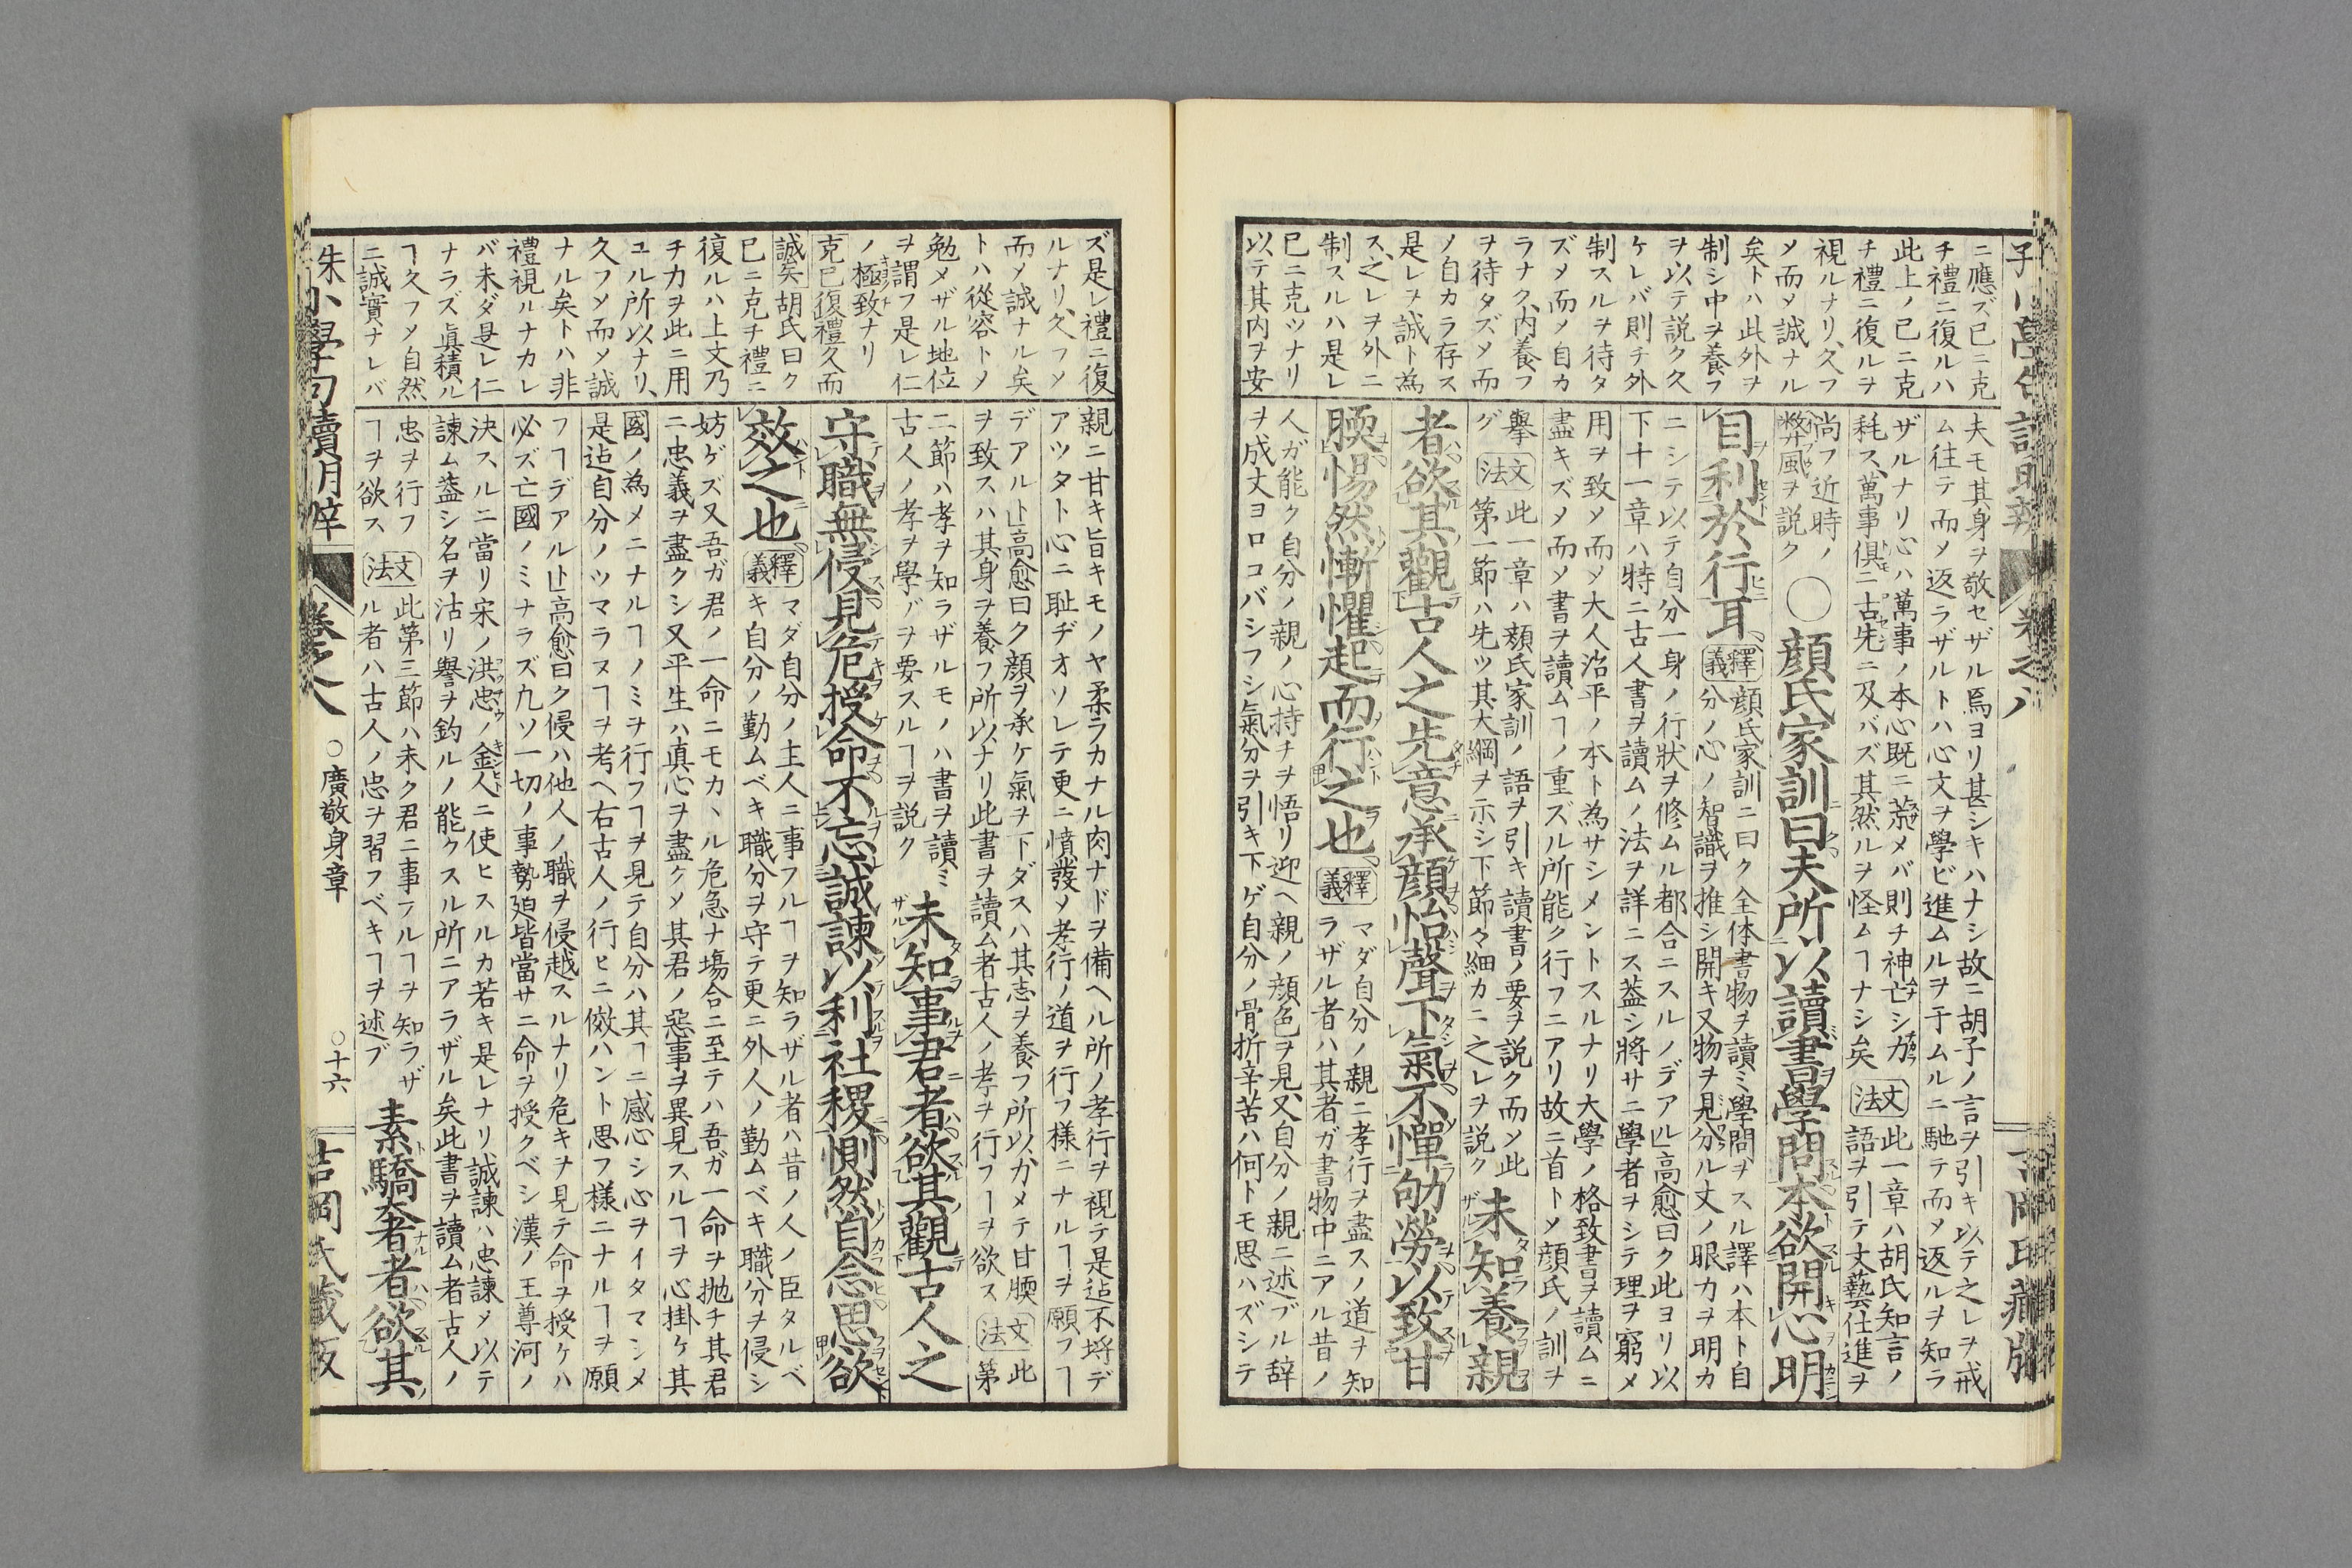 ニ應ズ已ニ克
チ禮ニ復ルハ
此上ノ已ニ克
チ禮ニ復ルヲ
視ルナリ、久フ
メ而メ誠ナル
矣トハ此外ヲ
制シ中ヲ養フ
ヲ以テ説ク久
ケレバ則チ外
制スルヲ待タ
ズメ而ノ自カ
ラナク、内養フ
ヲ待タズメ而
ノ自カラ存ス
是レヲ誠ト為
ス、之レヲ外ニ
制スルハ是レ
已ニ克ツナリ
以テ其内ヲ安
夫モ其身ヲ敬セザル焉ヨリ甚シキハナシ故ニ胡子ノ言ヲ引キ以テ之レヲ戒
ム往テ而メ返ラザルトハ心文ヲ學ビ進ムルヲ子ムルニ馳テ而メ返ルヲ知ラ
ザルナリ心ハ萬事ノ本心既ニ荒メバ則チ神亡シ力
耗ス、萬事俱ニ古先ニ及バズ其然ルヲ怪ムヿナシ矣
文法
此一章ハ胡氏知言ノ
語ヲ引テ文藝仕進ヲ
尚フ近時ノ
弊風ヲ説ク
〇顔氏家訓曰夫所以讀書學問本欲開心明
目利於行耳
釋義
顔氏家訓ニ曰ク全体書物ヲ讀ミ學問ヲスル譯ハ本ト自
分ノ心ノ智識ヲ推シ開キ又物ヲ見分ル丈ノ眼力ヲ明カ
ニシテ以テ自分一身ノ行狀ヲ修ムル都合ニスルノデアル」高愈曰ク此ヨリ以
下十一章ハ特ニ古人書ヲ讀ムノ法ヲ詳ニス蓋シ將サニ學者ヲシテ理ヲ窮メ
用ヲ致メ而メ大人治平ノ本ト為サシメントスルナリ大學ノ格致書ヲ讀ムニ
盡キズメ而ソ書ヲ讀ムヿノ重ズル所能ク行フニアリ故ニ首トメ顔氏ノ訓ヲ
擧
グ
文法
此一章ハ顔氏家訓ノ語ヲ引キ讀書ノ要ヲ説ク而ソ此
第一節ハ先ツ其大綱ヲ示シ下節々細カニ之レヲ説ク
未知養親
者欲其觀古人之先意承顔怡聲下氣不憚劬勞以致甘
腝惕然慚懼起而行之也
釋義
マダ自分ノ親ニ孝行ヲ盡スノ道ヲ知
ラザル者ハ其者ガ書物中ニアル昔ノ
人ガ能ク自分ノ親ノ心持チヲ悟リ迎ヘ親ノ顔色ヲ見、又自分ノ親ニ述ブル辞
ヲ成丈ヨロコバシフシ氣分ヲ引キ下ゲ自分ノ骨折辛苦ハ何トモ思ハズシテ
ズ是レ禮ニ復
ルナリ、久フソ
而メ誠ナル矣
トハ從容トメ
勉メザル地位
ヲ謂フ是レ仁
ノ極致ナリ
克已復禮久而
誠矣胡氏曰ク
已ニ克チ禮ニ
復ルハ上文乃
チ力ヲ此ニ用
ユル所以ナリ、
久フソ而メ誠
ナル矣トハ非
禮視ルナカレ
バ未ダ是レ仁
ナラズ眞積ル
ヿ久フメ自然
ニ誠實ナレバ
親ニ甘キ旨キモノヤ柔ラカナル肉ナドヲ備ヘル所ノ孝行ヲ視テ是迠不埓デ
アツタト心ニ耻ヂオソレテ更ニ憤發ソ孝行ノ道ヲ行フ様ニナルヿヲ願フヿ
デアル」高愈曰ク顔ヲ承ケ氣ヲ下ダスハ其志ヲ養フ所以カメテ甘腝
ヲ致スハ其身ヲ養フ所以ナリ此書ヲ讀ム者古人ノ孝ヲ行フヿヲ欲ス
文法
此
第
二節ハ孝ヲ知ラザルモノハ書ヲ讀ミ
古人ノ孝ヲ學ブヲ要スルヿヲ説ク
未知事君者欲其觀古人之
守職無侵見危授命不忘誠諫以利社稷惻然自念思欲
效之也
釋義
マダ自分ノ主人ニ事フルヿヲ知ラザル者ハ昔ノ人ノ臣タルベ
キ自分ノ勤ムベキ職分ヲ守テ更ニ外人ノ勤ムベキ職分ヲ侵シ
妨ゲズ又吾ガ君ノ一命ニモカヽル危急ナ塲合ニ至テハ吾ガ一命ヲ抛チ其君
ニ忠義ヲ盡クシ又平生ハ真心ヲ盡クメ其君ノ惡事ヲ異見スルヿヲ心掛ケ其
國ノ為メニナルヿノミヲ行フヿヲ見テ自分ハ其ヿニ感心シ心ヲイタマシメ
是迠自分ノツマラヌヿヲ考ヘ右古人ノ行ヒニ傚ハント思フ様ニナルヿヲ願
フヿデアル」高愈曰ク侵ハ他人ノ職ヲ侵越スルナリ危キヲ見テ命ヲ授ケハ
必ズ亡國ノミナラズ凢ソ一切ノ事勢廹皆當サニ命ヲ授クベシ漢ノ王尊河ノ
決スルニ當リ宋ノ洪忠ノ金人ニ使ヒスルカ若キ是レナリ誠諫ハ忠諫メ以テ
諫ム蓋シ名ヲ沽リ譽ヲ釣ルノ能クスル所ニアラザル矣此書ヲ讀ム者古人ノ
忠ヲ行フ
ヿヲ欲ス
文法
此第三節ハ未ク君ニ事フルヿヲ知ラザ
ル者ハ古人ノ忠ヲ習フベキヿヲ述ブ
素驕奢者欲其
朱
小學句讀明辛
卷之八
〇廣敬身章
〇十六
吉岡氏藏版